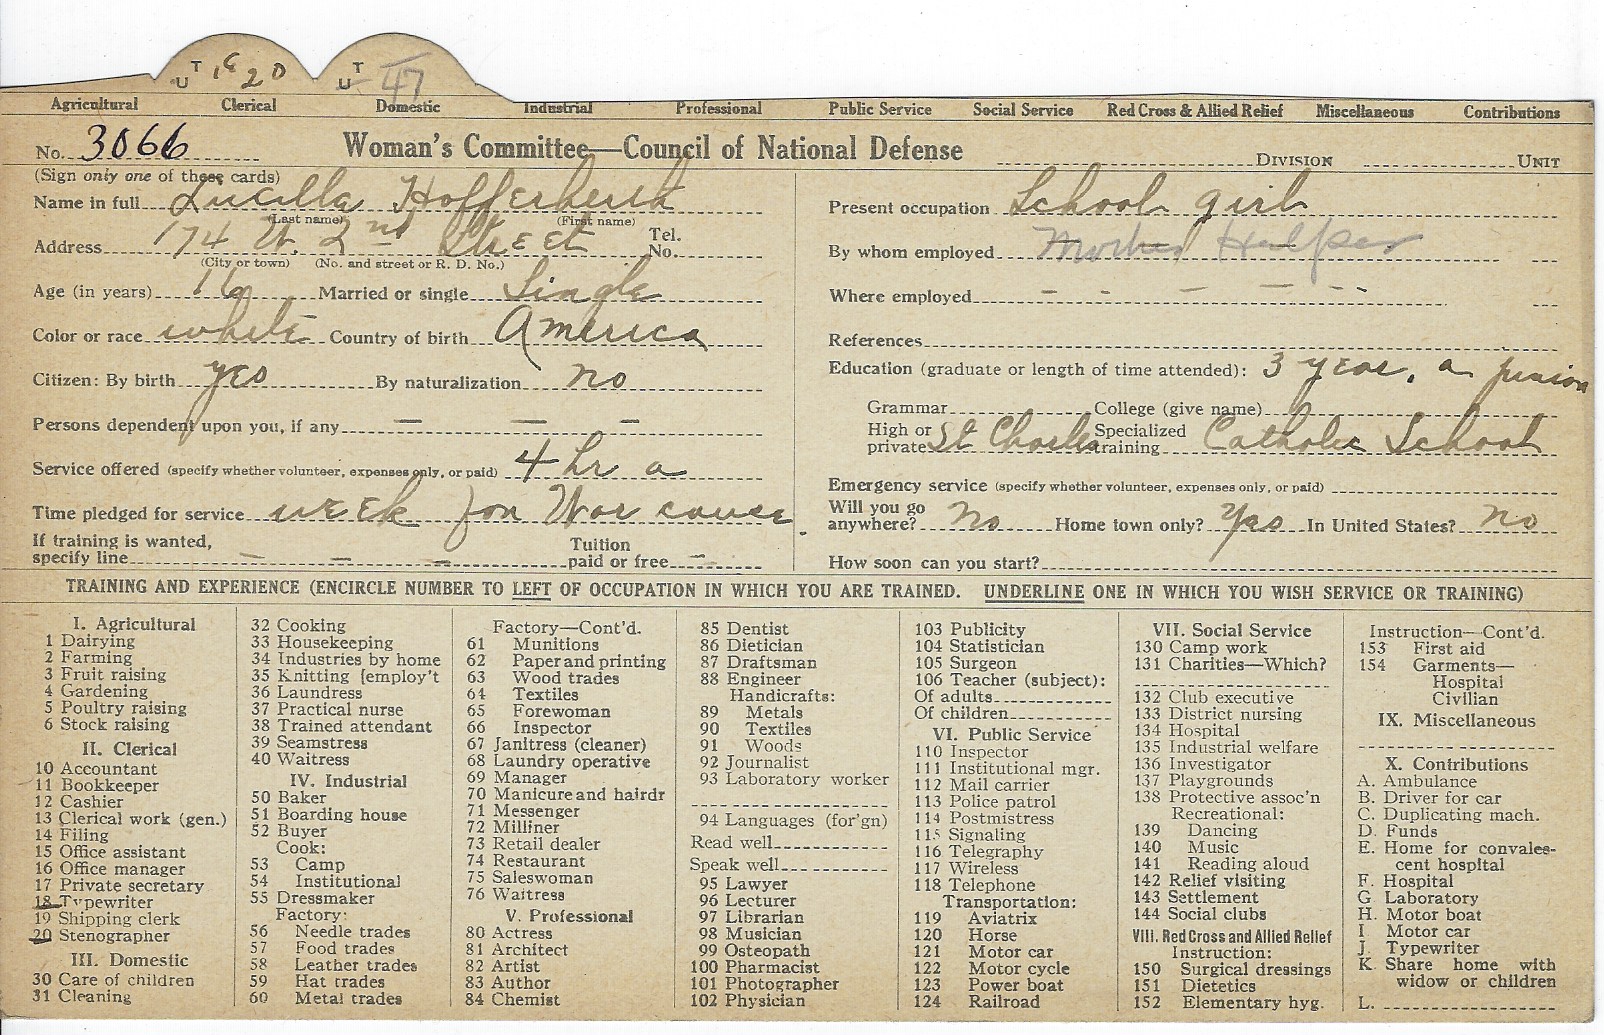 UT 18 20 UT 47
Agricultural Clerical Domestic Industrial Professional Public Service Social Service Red Cross & Allied Relief Miscellaneous Contributions
No. 3066 Woman's Committee—Council of National Defense DIVISION UNIT
(Sign only one of these cards)
Name in full Lucilla Hofferberth
(Last name) (First name)
Address 174 W. 2nd Street Tel. No.
(City or town) (No. and street or R. D. No.)
Age (in years) 16 Married or single Single
Color or race white Country of birth America
Citizen: By birth yes By naturalization no
Persons dependent upon you, if any — — —
Service offered (specify whether volunteer, expenses only, or paid) 4 hr a
Time pledged for service week for War cause.
If training is wanted, specify line — — — Tuition paid or free —
Present occupation School girl
By whom employed Mother Helper
Where employed - - - - - -
References
Education (graduate or length of time attended): 3 year, a junior
Grammar College (give name)
High or private St Charles Specialized training Catholic School
Emergency service (specify whether volunteer, expenses only, or paid)
Will you go anywhere? No Home town only? Yes In United States? no
How soon can you start?
TRAINING AND EXPERIENCE (ENCIRCLE NUMBER TO LEFT OF OCCUPATION IN WHICH YOU ARE TRAINED. UNDERLINE ONE IN WHICH YOU WISH SERVICE OR TRAINING)
I. Agricultural
1 Dairying
2 Farming
3 Fruit raising
4 Gardening
5 Poultry raising
6 Stock raising
II. Clerical
10 Accountant
11 Bookkeeper
12 Cashier
13 Clerical work (gen.)
14 Filing
15 Office assistant
16 Office manager
17 Private secretary
18 Typewriter
19 Shipping clerk
20 Stenographer
III. Domestic
30 Care of children
31 Cleaning
32 Cooking
33 Housekeeping
34 Industries by home
35 Knitting [employ't
36 Laundress
37 Practical nurse
38 Trained attendant
39 Seamstress
40 Waitress
IV. Industrial
50 Baker
51 Boarding house
52 Buyer
Cook:
53 Camp
54 Institutional
55 Dressmaker
Factory:
56 Needle trades
57 Food trades
58 Leather trades
59 Hat trades
60 Metal trades
Factory—Cont'd.
61 Munitions
62 Paper and printing
63 Wood trades
64 Textiles
65 Forewoman
66 Inspector
67 Janitress (cleaner)
68 Laundry operative
69 Manager
70 Manicure and hairdr
71 Messenger
72 Milliner
73 Retail dealer
74 Restaurant
75 Saleswoman
76 Waitress
V. Professional
80 Actress
81 Architect
82 Artist
83 Author
84 Chemist
85 Dentist
86 Dietician
87 Draftsman
88 Engineer
Handicrafts:
89 Metals
90 Textiles
91 Woods
92 Journalist
93 Laboratory worker
94 Languages (for'gn)
Read well
Speak well
95 Lawyer
96 Lecturer
97 Librarian
98 Musician
99 Osteopath
100 Pharmacist
101 Photographer
102 Physician
103 Publicity
104 Statistician
105 Surgeon
106 Teacher (subject):
Of adults
Of children
VI. Public Service
110 Inspector
111 Institutional mgr.
112 Mail carrier
113 Police patrol
114 Postmistress
115 Signaling
116 Telegraphy
117 Wireless
118 Telephone
Transportation:
119 Aviatrix
120 Horse
121 Motor car
122 Motor cycle
123 Power boat
124 Railroad
VII. Social Service
130 Camp work
131 Charities—Which?
132 Club executive
133 District nursing
134 Hospital
135 Industrial welfare
136 Investigator
137 Playgrounds
138 Protective assoc'n
Recreational:
139 Dancing
140 Music
141 Reading aloud
142 Relief visiting
143 Settlement
144 Social clubs
VIII. Red Cross and Allied Relief
Instruction:
150 Surgical dressings
151 Dietetics
152 Elementary hyg.
Instruction—Cont'd.
153 First aid
154 Garments—
Hospital
Civilian
IX. Miscellaneous
X. Contributions
A. Ambulance
B. Driver for car
C. Duplicating mach.
D. Funds
E. Home for convales-
cent hospital
F. Hospital
G. Laboratory
H. Motor boat
I. Motor car
J. Typewriter
K. Share home with
widow or children
L.